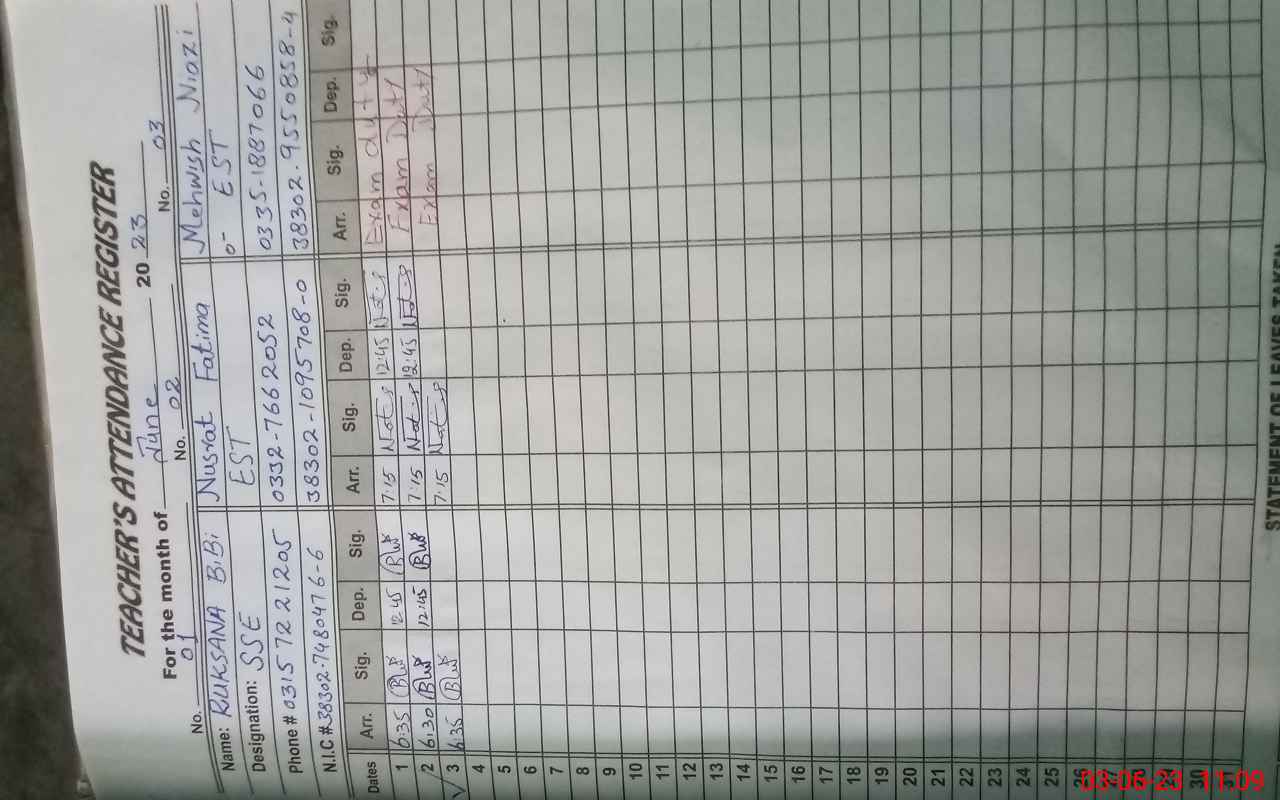 TEACHER'S ATTENDANCE REGISTER
For the month of June 2023
No. 01 No. 02 No. 03
Name: RUKSANA BiBi Nusrat Fatima Mehwish Niazi
Designation: SSE EST EST
Phone # 0315 72 21205 0332-7662052 0335-1887066
N.I.C # 38302-7480476-6 38302-1095708-0 38302-9550858-4
Dates Arr. Sig. Dep. Sig. Arr. Sig. Dep. Sig. Arr. Sig. Dep. Sig.
1 6:35 12:45 7:15 12:45 Exam duty
2 6:30 12:45 7:15 12:45 Exam Duty
3 6:35 7:15 Exam Duty
4
5
6
7
8
9
10
11
12
13
14
15
16
17
18
19
20
21
22
23
24
25
26
27
28
29
30
31
STATEMENT OF LEAVES TAKEN
03-06-23 11:09